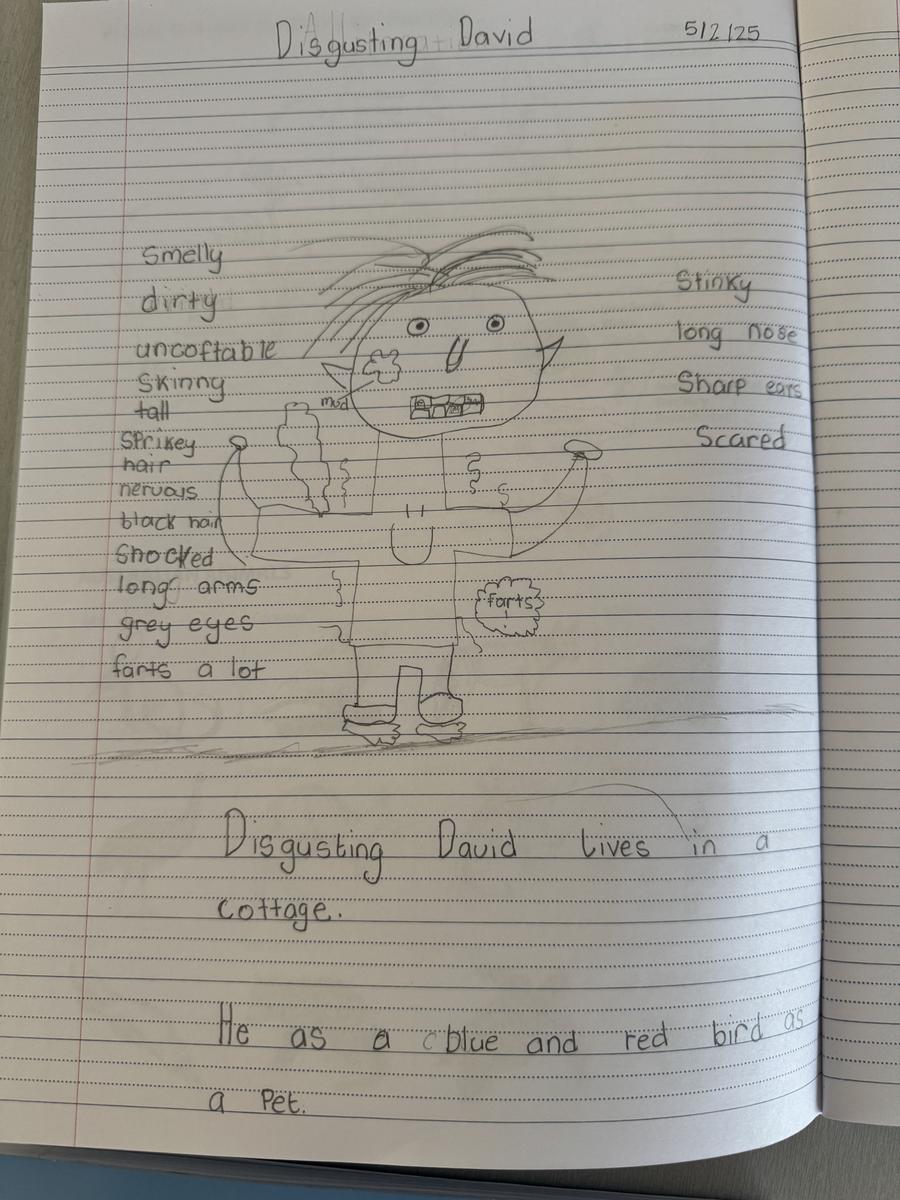 Disgusting David 5/2/25
Smelly
dirty
uncoftable
Skinny
tall
Sprikey
hair
nervous
black hair
Shocked
long arms
grey eyes
farts a lot
mud
farts
Stinky
long nose
Sharp ears
Scared
Disgusting David lives in a
cottage.
He as a blue and red bird as
a Pet.